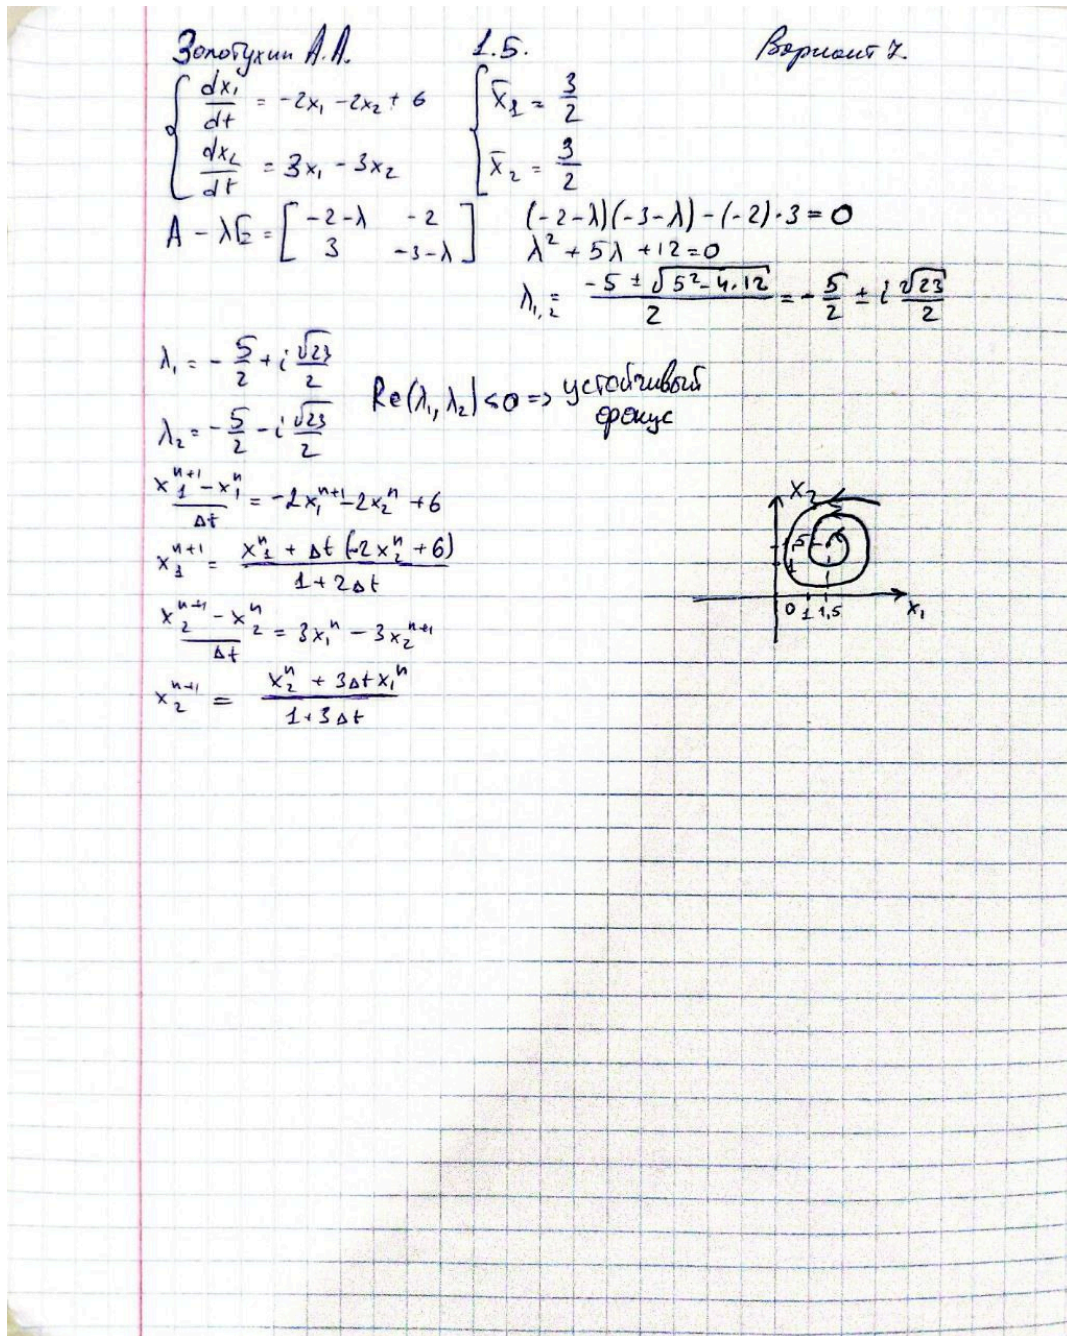 Золотухин А.А. 1.5. Вариант 7.
{ dx₁/dt = -2x₁ - 2x₂ + 6 { x̄₁ = 3/2
dx₂/dt = 3x₁ - 3x₂ x̄₂ = 3/2
A - λE = [ -2-λ -2 ; 3 -3-λ ] (-2-λ)(-3-λ) - (-2)·3 = 0
λ² + 5λ + 12 = 0
λ₁,₂ = (-5 ± √(5² - 4·12))/2 = -5/2 ± i √23/2
λ₁ = -5/2 + i √23/2
Re(λ₁, λ₂) < 0 => устойчивый фокус
λ₂ = -5/2 - i √23/2
(x₁ⁿ⁺¹ - x₁ⁿ)/Δt = -2x₁ⁿ⁺¹ - 2x₂ⁿ + 6
x₁ⁿ⁺¹ = (x₁ⁿ + Δt(-2x₂ⁿ + 6))/(1 + 2Δt)
(x₂ⁿ⁺¹ - x₂ⁿ)/Δt = 3x₁ⁿ - 3x₂ⁿ⁺¹
x₂ⁿ⁺¹ = (x₂ⁿ + 3Δt x₁ⁿ)/(1 + 3Δt)
x₂
1,5
1
0 1 1,5 x₁